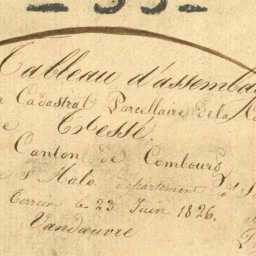 Tableau d'assemb
Cadastral Parcellaire de la
Tressé.
Canton de Combourg
St Malo département
Terrein le 23 Juin 1826.
Vandœuvre